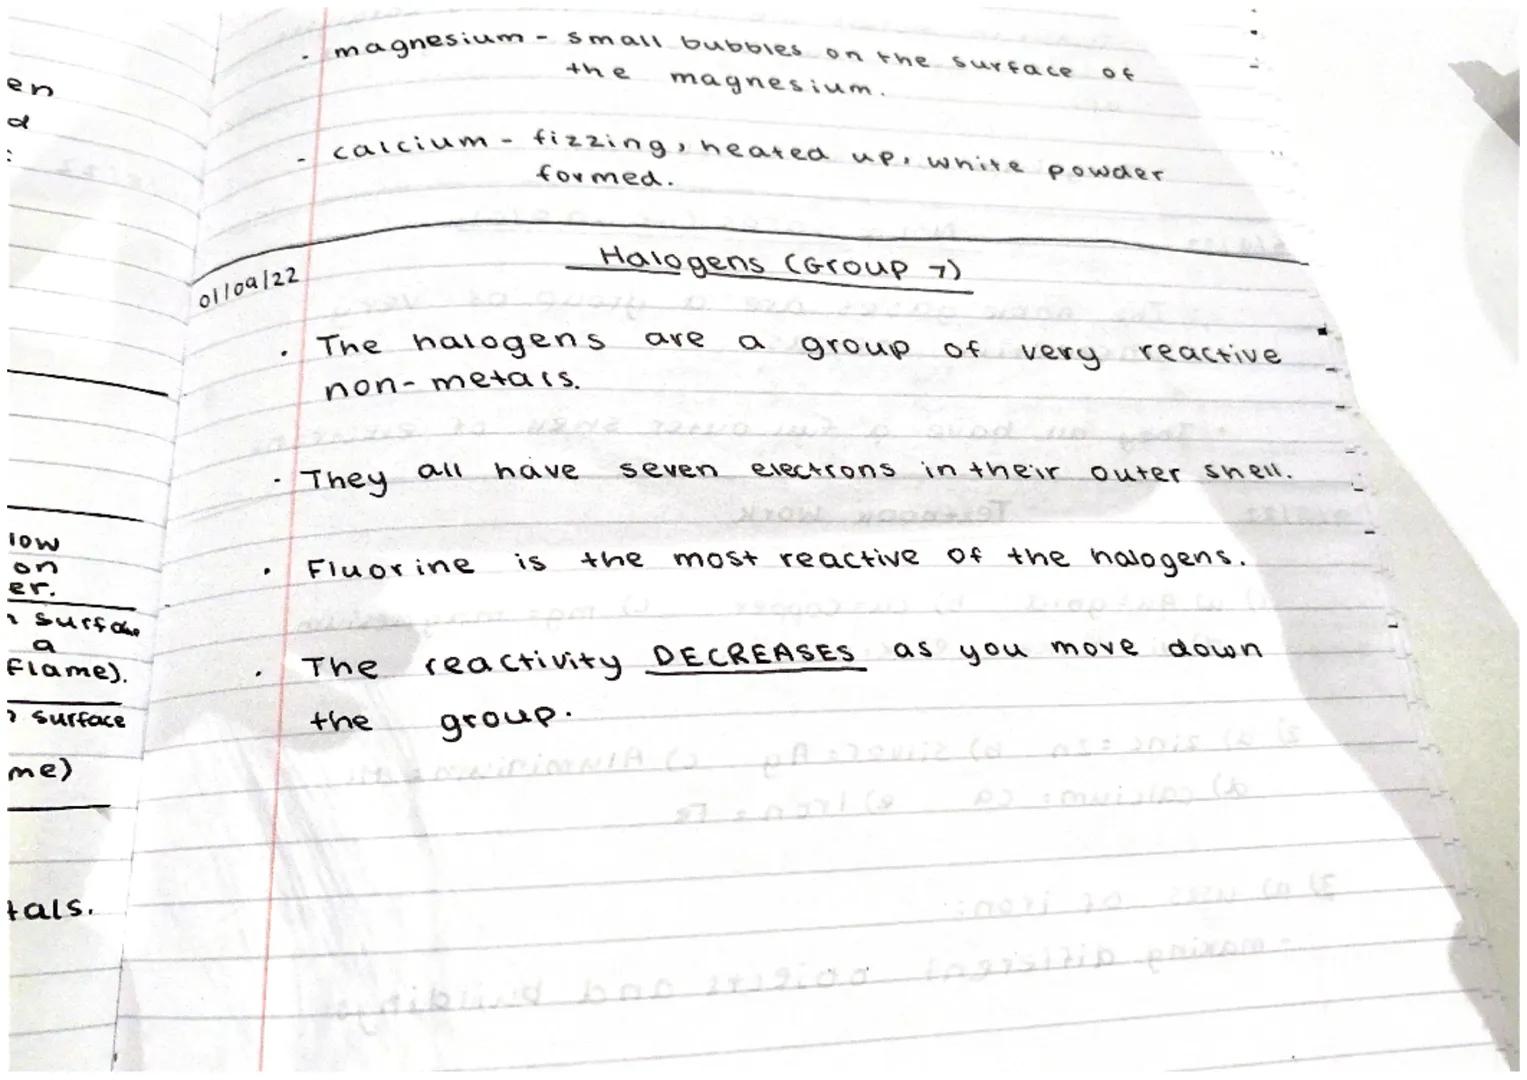 - magnesium - small bubbles on the surface of
the magnesium.
- calcium - fizzing, heated up, white powder
formed.
01/09/22
Halogens (Group 7)
• The halogens are a group of very reactive
non-metals.
• They all have seven electrons in their outer shell.
• Fluorine is the most reactive of the halogens.
• The reactivity DECREASES as you move down
the group.
en
d
:
low
on
er.
surface
a
flame).
surface
me)
tals.